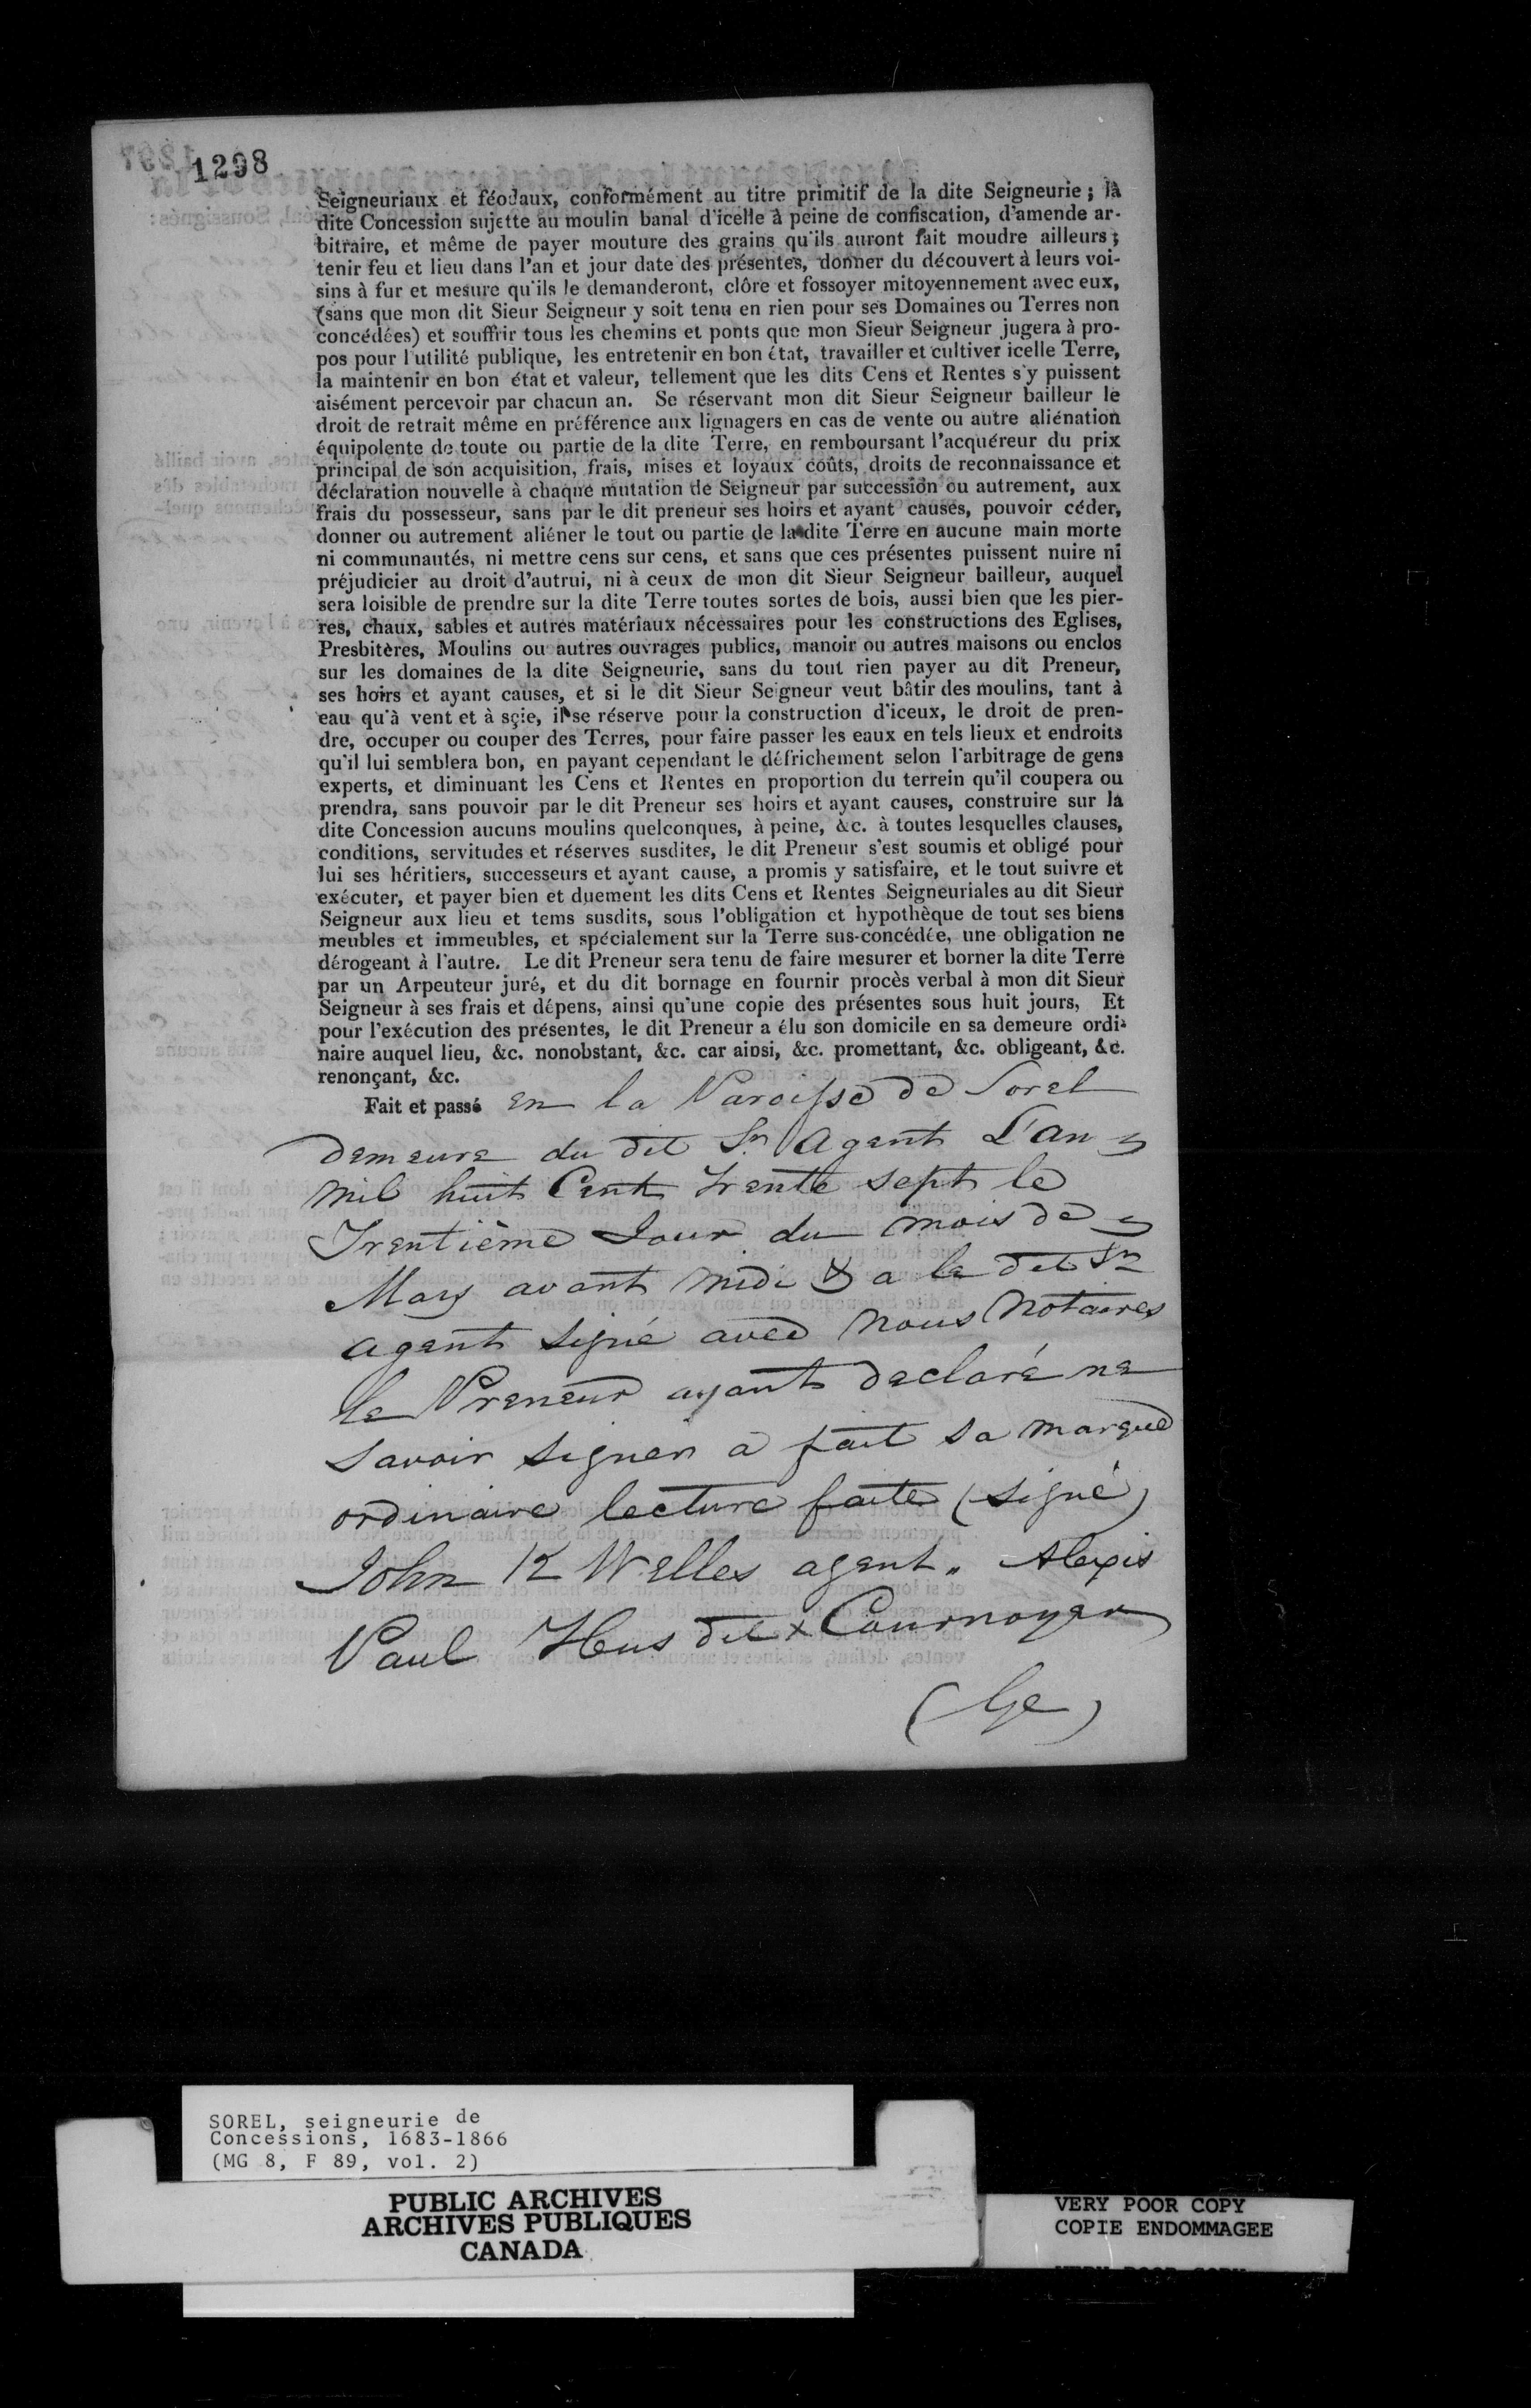 1298
Seigneuriaux et féodaux, conformément au titre primitif de la dite Seigneurie ; la
dite Concession sujette au moulin banal d'icelle à peine de confiscation, d'amende ar-
bitraire, et même de payer mouture des grains qu'ils auront fait moudre ailleurs ;
tenir feu et lieu dans l'an et jour date des présentes, donner du découvert à leurs voi-
sins à fur et mesure qu'ils le demanderont, clôre et fossoyer mitoyennement avec eux,
(sans que mon dit Sieur Seigneur y soit tenu en rien pour ses Domaines ou Terres non
concédées) et souffrir tous les chemins et ponts que mon Sieur Seigneur jugera à pro-
pos pour l'utilité publique, les entretenir en bon état, travailler et cultiver icelle Terre,
la maintenir en bon état et valeur, tellement que les dits Cens et Rentes s'y puissent
aisément percevoir par chacun an. Se réservant mon dit Sieur Seigneur bailleur le
droit de retrait même en préférence aux lignagers en cas de vente ou autre aliénation
équipolente de toute ou partie de la dite Terre, en remboursant l'acquéreur du prix
principal de son acquisition, frais, mises et loyaux coûts, droits de reconnaissance et
déclaration nouvelle à chaque mutation de Seigneur par succession ou autrement, aux
frais du possesseur, sans par le dit preneur ses hoirs et ayant causes, pouvoir céder,
donner ou autrement aliéner le tout ou partie de la dite Terre en aucune main morte
ni communautés, ni mettre cens sur cens, et sans que ces présentes puissent nuire ni
préjudicier au droit d'autrui, ni à ceux de mon dit Sieur Seigneur bailleur, auquel
sera loisible de prendre sur la dite Terre toutes sortes de bois, aussi bien que les pier-
res, chaux, sables et autres matériaux nécessaires pour les constructions des Eglises,
Presbitères, Moulins ou autres ouvrages publics, manoir ou autres maisons ou enclos
sur les domaines de la dite Seigneurie, sans du tout rien payer au dit Preneur,
ses hoirs et ayant causes, et si le dit Sieur Seigneur veut bâtir des moulins, tant à
eau qu'à vent et à sçie, il se réserve pour la construction d'iceux, le droit de pren-
dre, occuper ou couper des Terres, pour faire passer les eaux en tels lieux et endroits
qu'il lui semblera bon, en payant cependant le défrichement selon l'arbitrage de gens
experts, et diminuant les Cens et Rentes en proportion du terrein qu'il coupera ou
prendra, sans pouvoir par le dit Preneur ses hoirs et ayant causes, construire sur la
dite Concession aucuns moulins quelconques, à peine, &c. à toutes lesquelles clauses,
conditions, servitudes et réserves susdites, le dit Preneur s'est soumis et obligé pour
lui ses héritiers, successeurs et ayant cause, a promis y satisfaire, et le tout suivre et
exécuter, et payer bien et duement les dits Cens et Rentes Seigneuriales au dit Sieur
Seigneur aux lieu et tems susdits, sous l'obligation et hypothèque de tout ses biens
meubles et immeubles, et spécialement sur la Terre sus-concédée, une obligation ne
dérogeant à l'autre. Le dit Preneur sera tenu de faire mesurer et borner la dite Terre
par un Arpeuteur juré, et du dit bornage en fournir procès verbal à mon dit Sieur
Seigneur à ses frais et dépens, ainsi qu'une copie des présentes sous huit jours, Et
pour l'exécution des présentes, le dit Preneur a élu son domicile en sa demeure ordi-
naire auquel lieu, &c. nonobstant, &c. car ainsi, &c. promettant, &c. obligeant, &c.
renonçant, &c.
Fait et passé en la Paroisse de Sorel
demeure du dit Sr. Agent L'an
mil huit Cent trente sept le
Trentième Jour du mois de
Mars avant midi & a le dit Sr
agent signé avec nous Notaires
le Preneur ayant declaré ne
savoir signer a fait sa marque
ordinaire lecture faite (signé)
John K Welles agent „ Alexis
Paul Hus dit x Cournoyer
SOREL, seigneurie de
Concessions, 1683-1866
(MG 8, F 89, vol. 2)
PUBLIC ARCHIVES
ARCHIVES PUBLIQUES
CANADA
VERY POOR COPY
COPIE ENDOMMAGEE